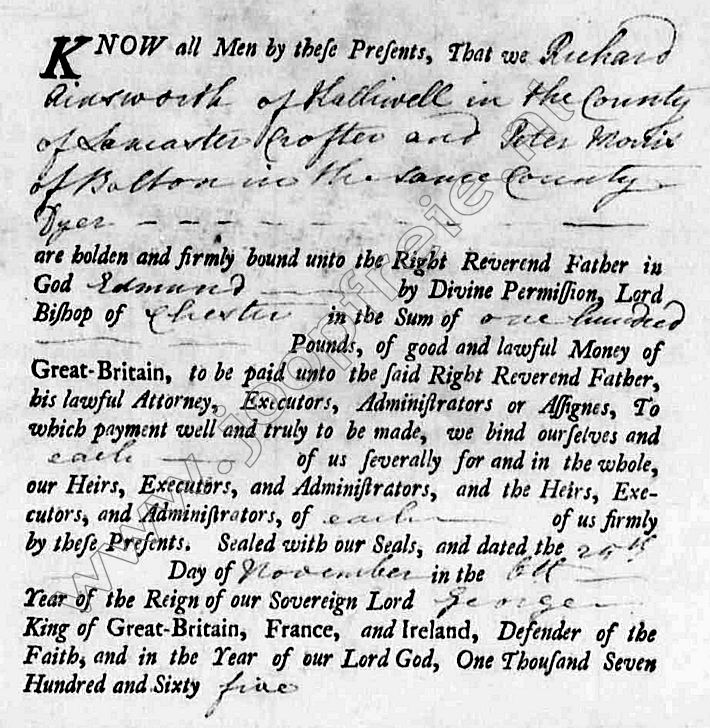 KNOW all Men by theſe Preſents, That we Richard
Ainsworth of Halliwell in the County
of Lancaster Crofter and Peter Morris
of Bolton in the same County
Dyer
are holden and firmly bound unto the Right Reverend Father in
God Edmund by Divine Permiſſion, Lord
Biſhop of Chester in the Sum of one hundred
Pounds, of good and lawful Money of
Great-Britain, to be paid unto the ſaid Right Reverend Father,
his lawful Attorney, Executors, Adminiſtrators or Aſſignes, To
which payment well and truly to be made, we bind ourſelves and
each of us ſeverally for and in the whole,
our Heirs, Executors, and Adminiſtrators, and the Heirs, Exe-
cutors, and Adminiſtrators, of each of us firmly
by theſe Preſents. Sealed with our Seals, and dated the 29th
Day of November in the 6th
Year of the Reign of our Sovereign Lord George
King of Great-Britain, France, and Ireland, Defender of the
Faith, and in the Year of our Lord God, One Thouſand Seven
Hundred and Sixty five